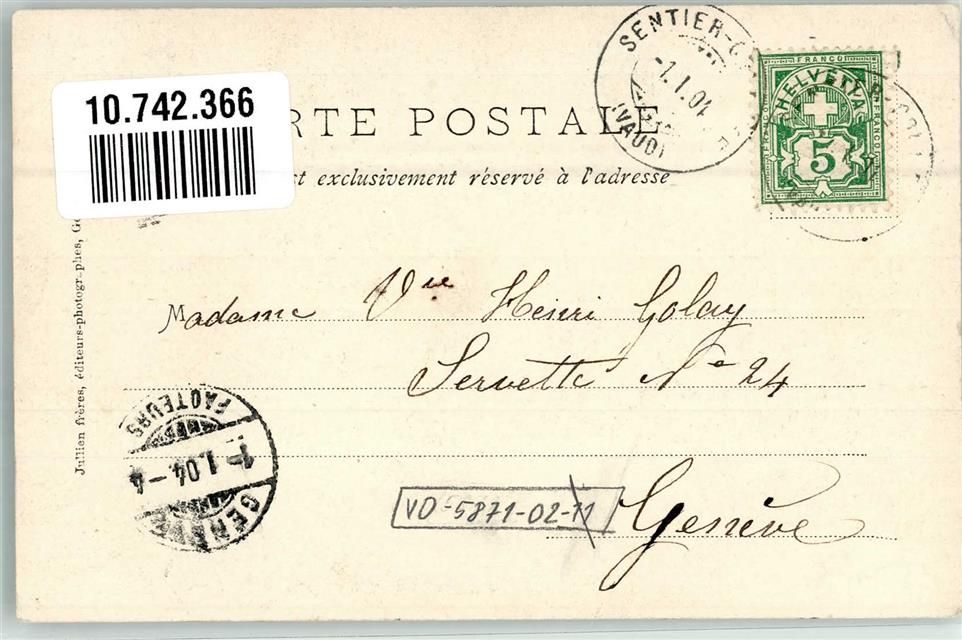 SENTIER
1.I.04
(VAUD)
FRANCO
HELVETIA
FRANCO
FRANCO
5
10.742.366
RTE POSTALE
st exclusivement réservé à l'adresse
Jullien frères, éditeurs-photographes, Ge
Madame Vve Henri Golay
Servette No 24
Genève
VD-5871-02-11
FACTEURS
1.I.04.-4
GENÈVE